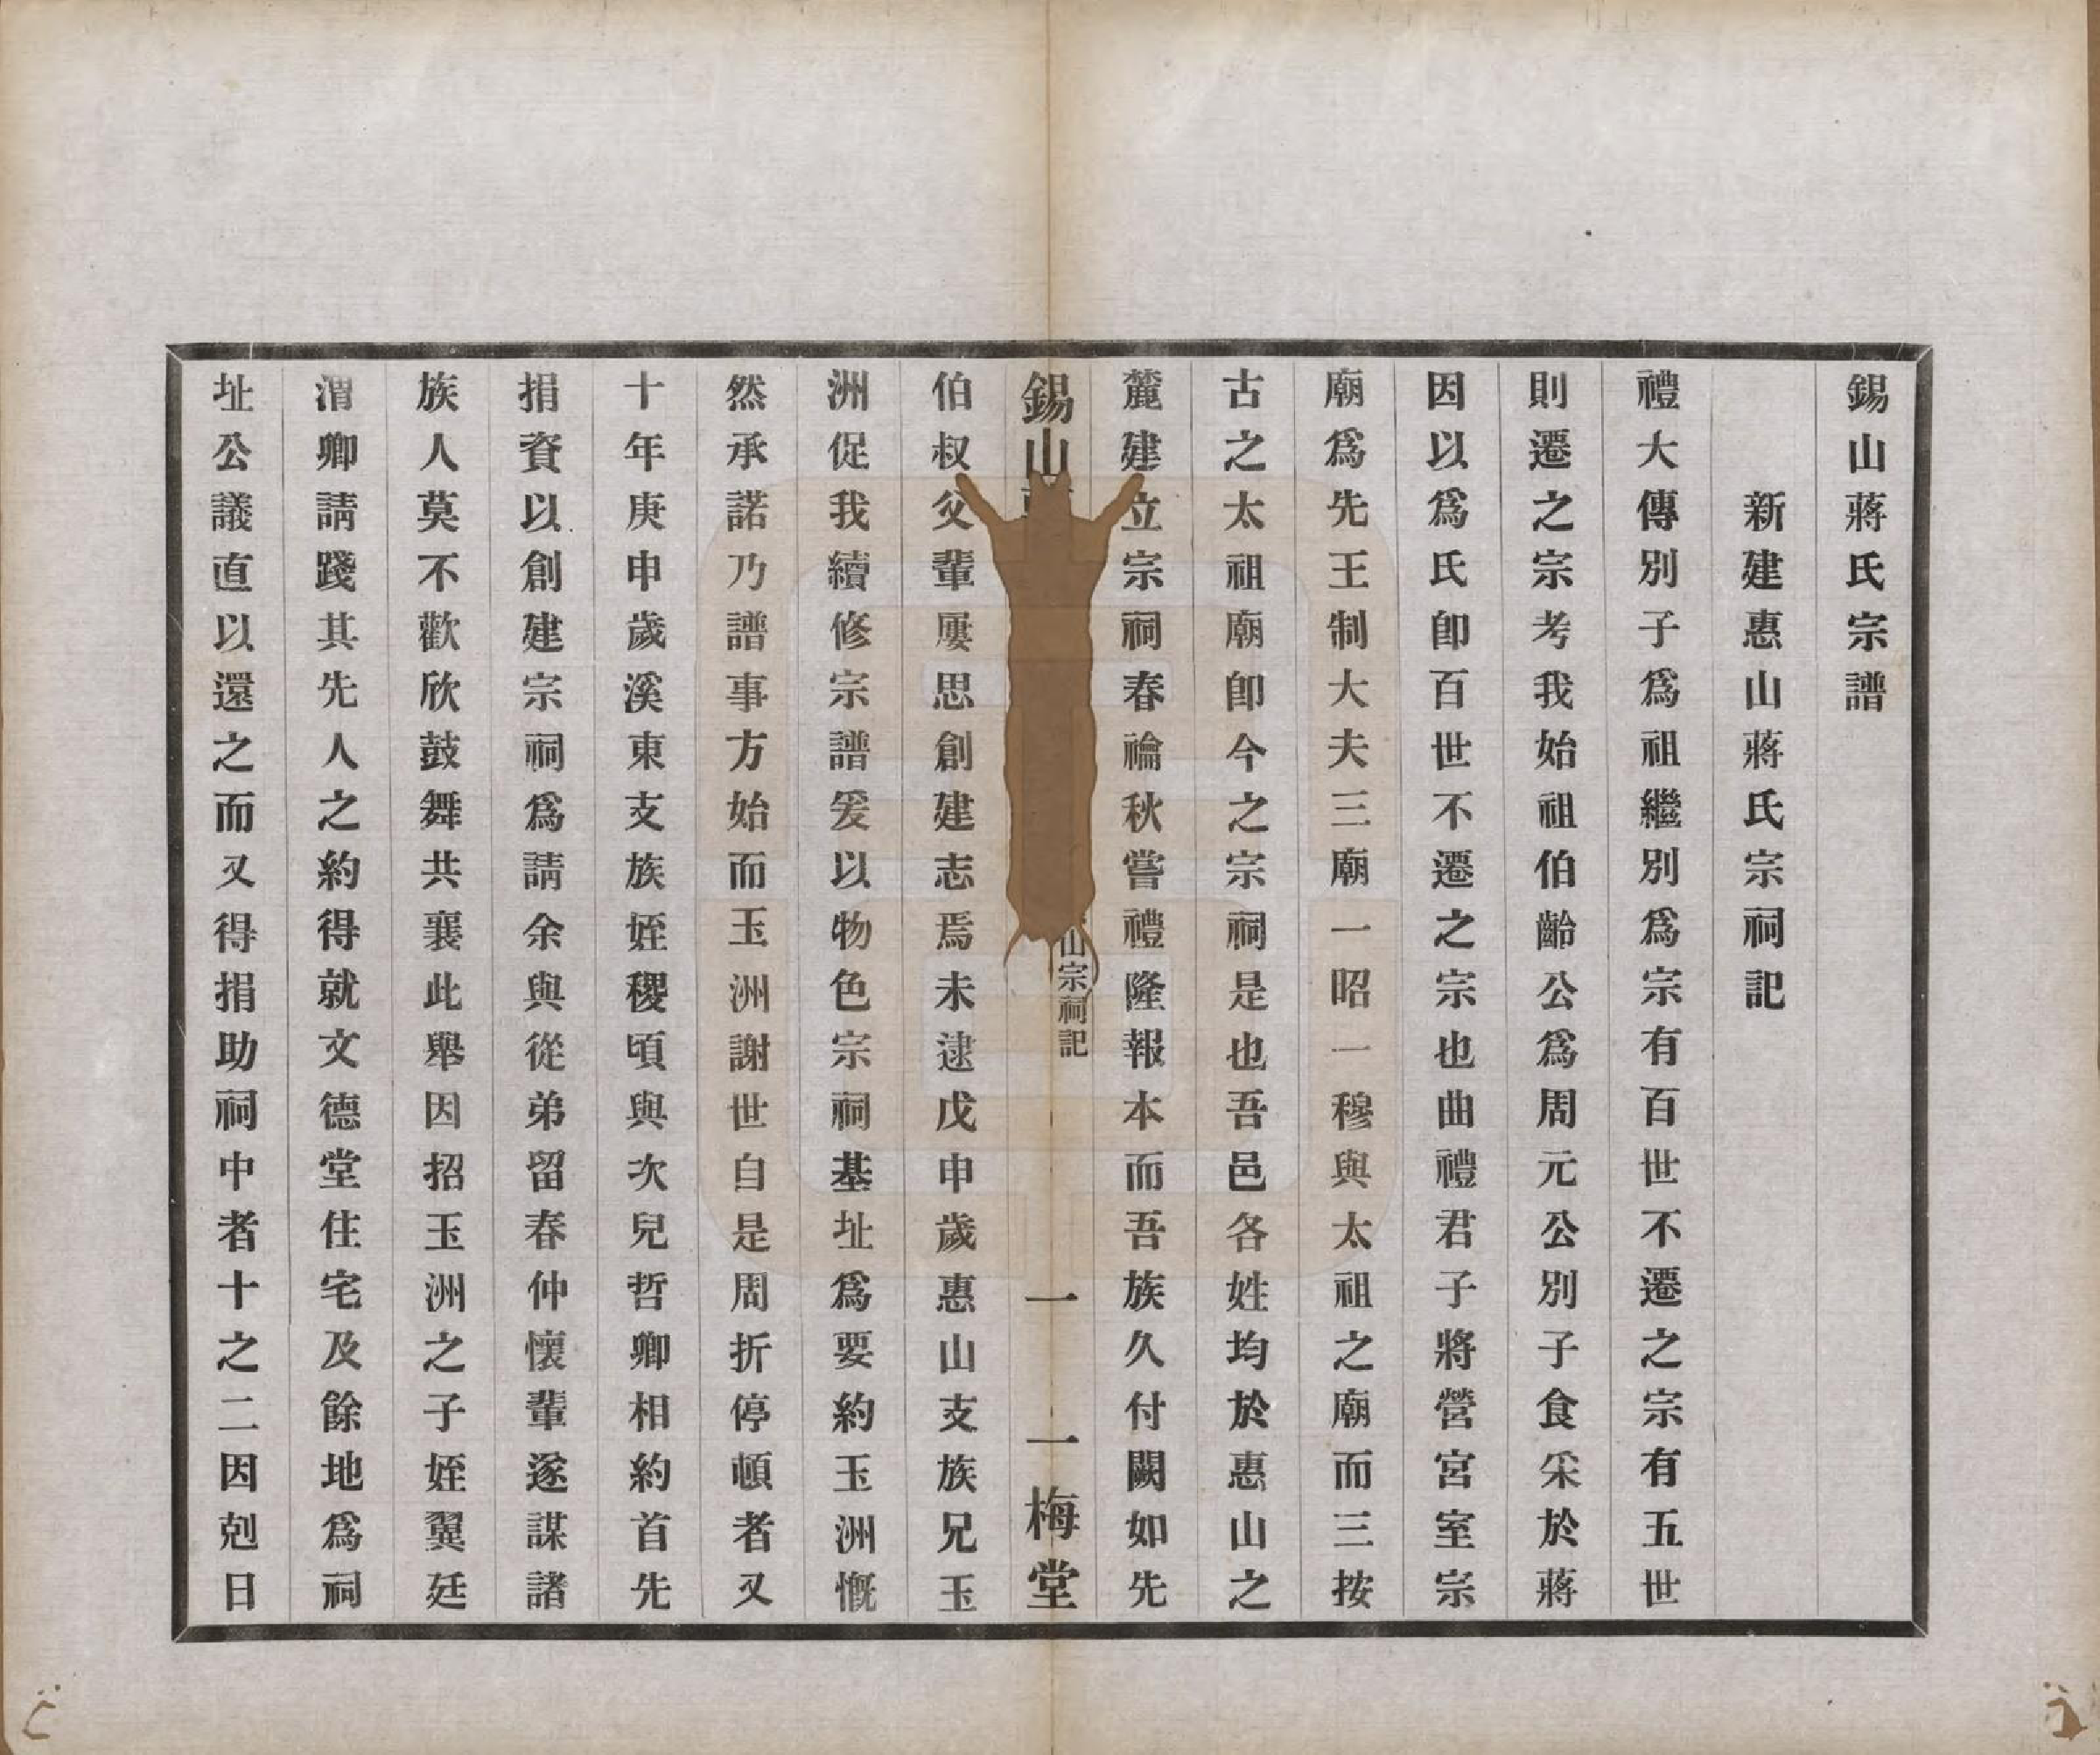 錫山蔣氏宗譜
新建惠山蔣氏宗祠記
禮大傳別子爲祖繼別爲宗有百世不遷之宗有五世
則遷之宗考我始祖伯齡公爲周元公別子食采於蔣
因以爲氏卽百世不遷之宗也曲禮君子將營宮室宗
廟爲先王制大夫三廟一昭一穆與太祖之廟而三按
古之太祖廟卽今之宗祠是也吾邑各姓均於惠山之
麓建立宗祠春禴秋嘗禮隆報本而吾族久付闕如先
錫山
山宗祠記
一
一梅堂
伯叔父輩屢思創建志焉未逮戊申歲惠山支族兄玉
洲促我續修宗譜爰以物色宗祠基址爲要約玉洲慨
然承諾乃譜事方始而玉洲謝世自是周折停頓者又
十年庚申歲溪東支族姪稷頃與次兒哲卿相約首先
捐資以創建宗祠爲請余與從弟留春仲懷輩遂謀諸
族人莫不歡欣鼓舞共襄此舉因招玉洲之子姪翼廷
渭卿請踐其先人之約得就文德堂住宅及餘地爲祠
址公議直以還之而又得捐助祠中者十之二因剋日